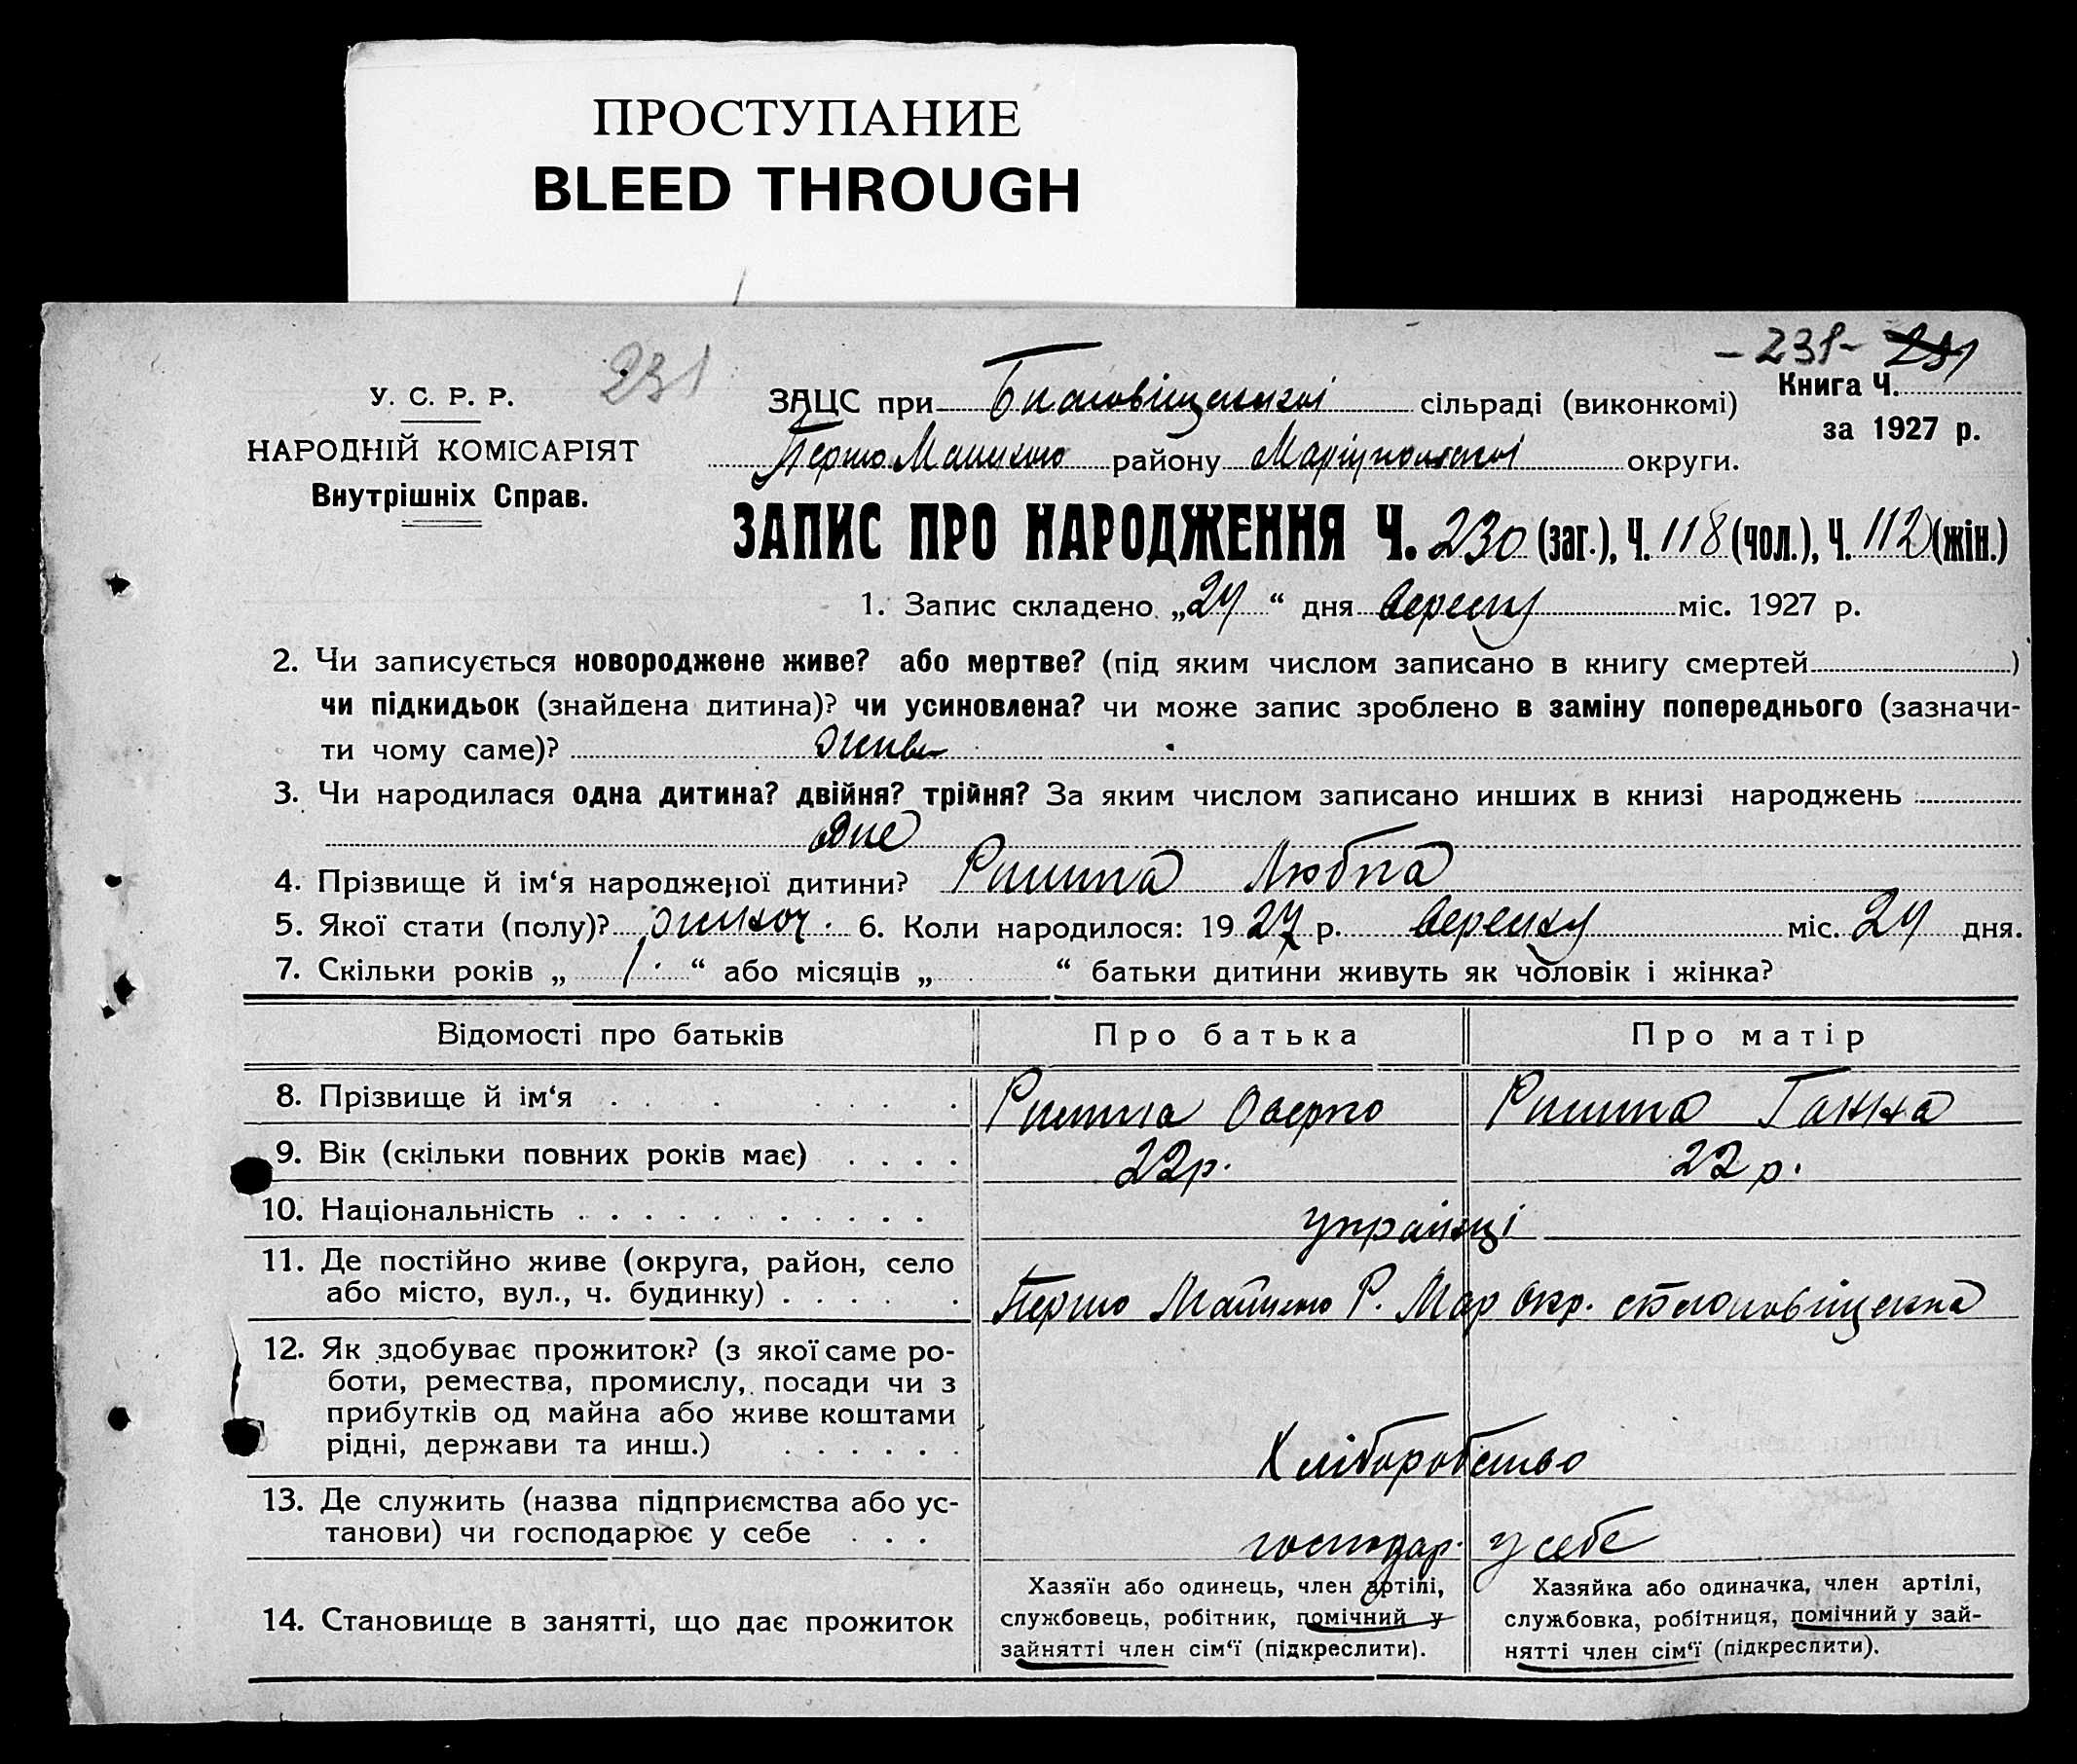 ПРОСТУПАНИЕ
BLEED THROUGH
231
- 231 - 231
У. С. Р. Р.
НАРОДНІЙ КОМІСАРІЯТ
Внутрішніх Справ.
Книга Ч.
за 1927 р.
ЗАЦС при Благовіщенській сільраді (виконкомі)
району Маріупольської округи.
ЗАПИС ПРО НАРОДЖЕННЯ Ч. 230 (заг.), Ч. 118 (чол.), Ч. 112 (жін.)
1. Запис складено „24“ дня вересня міс. 1927 р.
2. Чи записується новороджене живе? або мертве? (під яким числом записано в книгу смертей )
чи підкидьок (знайдена дитина)? чи усиновлена? чи може запис зроблено в заміну попереднього (зазначи-
ти чому саме)? живе
3. Чи народилася одна дитина? двійня? трійня? За яким числом записано инших в книзі народжень
одне
4. Прізвище й ім‘я народженої дитини? Любка
5. Якої стати (полу)? жіноч. 6. Коли народилося: 1927 р. міс. 24 дня.
7. Скільки років „ 1 “ або місяців „ “ батьки дитини живуть як чоловік і жінка?
Відомості про батьків Про батька Про матір
8. Прізвище й ім‘я Ганна
9. Вік (скільки повних років має) 22р. 22 р.
10. Національність українці
11. Де постійно живе (округа, район, село
або місто, вул., ч. будинку) Р. Мар Окр.
12. Як здобуває прожиток? (з якої саме ро-
боти, ремества, промислу, посади чи з
прибутків од майна або живе коштами
рідні, держави та инш.) Хліборобство
13. Де служить (назва підприємства або ус-
танови) чи господарює у себе господар. у себе
14. Становище в занятті, що дає прожиток
Хазяїн або одинець, член артілі,
службовець, робітник, помічний у
зайнятті член сім‘ї (підкреслити).
Хазяйка або одиначка, член артілі,
службовка, робітниця, помічний у зай-
нятті член сім‘ї (підкреслити).